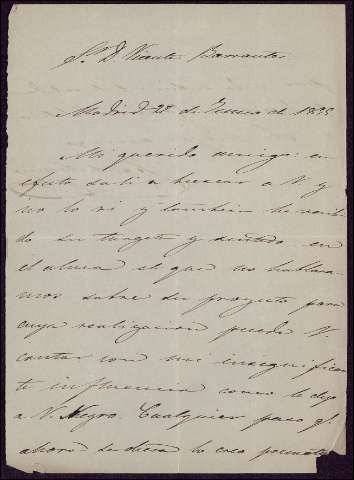 Sr. D. Vicente Barrantes
Madrid 28 de Enero de 1893
Mi querido amigo: en
efecto salí a buscar a V. y
no lo vi y tambien he recibi
do su targeta y sentido en
el alma el que no hablara
mos sobre su proyecto para
cuya realizacion puede V.
contar con mi insignifican
te influencia como le dije
a V. Negro. Cualquier paso q.
ahora se diera lo creo